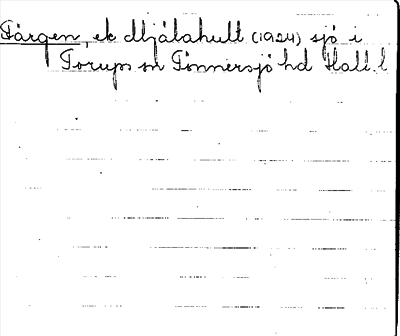 Färgen, ek Mjälahult (1924) sjö i
Torups sn Tönnersjö hd Hall. l